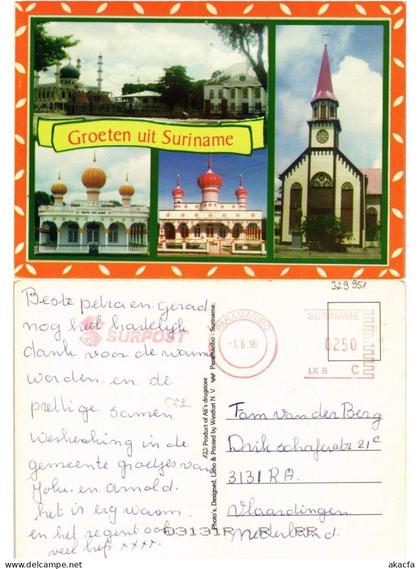 Groeten uit Suriname
329951
Beste petra en gerad
nog het hartelijk
dank voor de warme
worden en de
prettige samen
werking in de
gemeente groetjes van
John en arnold.
het is erg waarm
en het regent ook
veel liefs xxxx.
SURPOST
PARAMARIBO
-1.6.98
SURINAME
0250
LK 8 C
Product of Ali's drugstore
Photo's, Designed, Litho & Printed by Westfort N.V. Paramaribo - Suriname.
Fam van der Berg
Dirk schaferstr 21c
3131 RA.
Vlaardingen
Nederland.
www.delcampe.net
akacfa